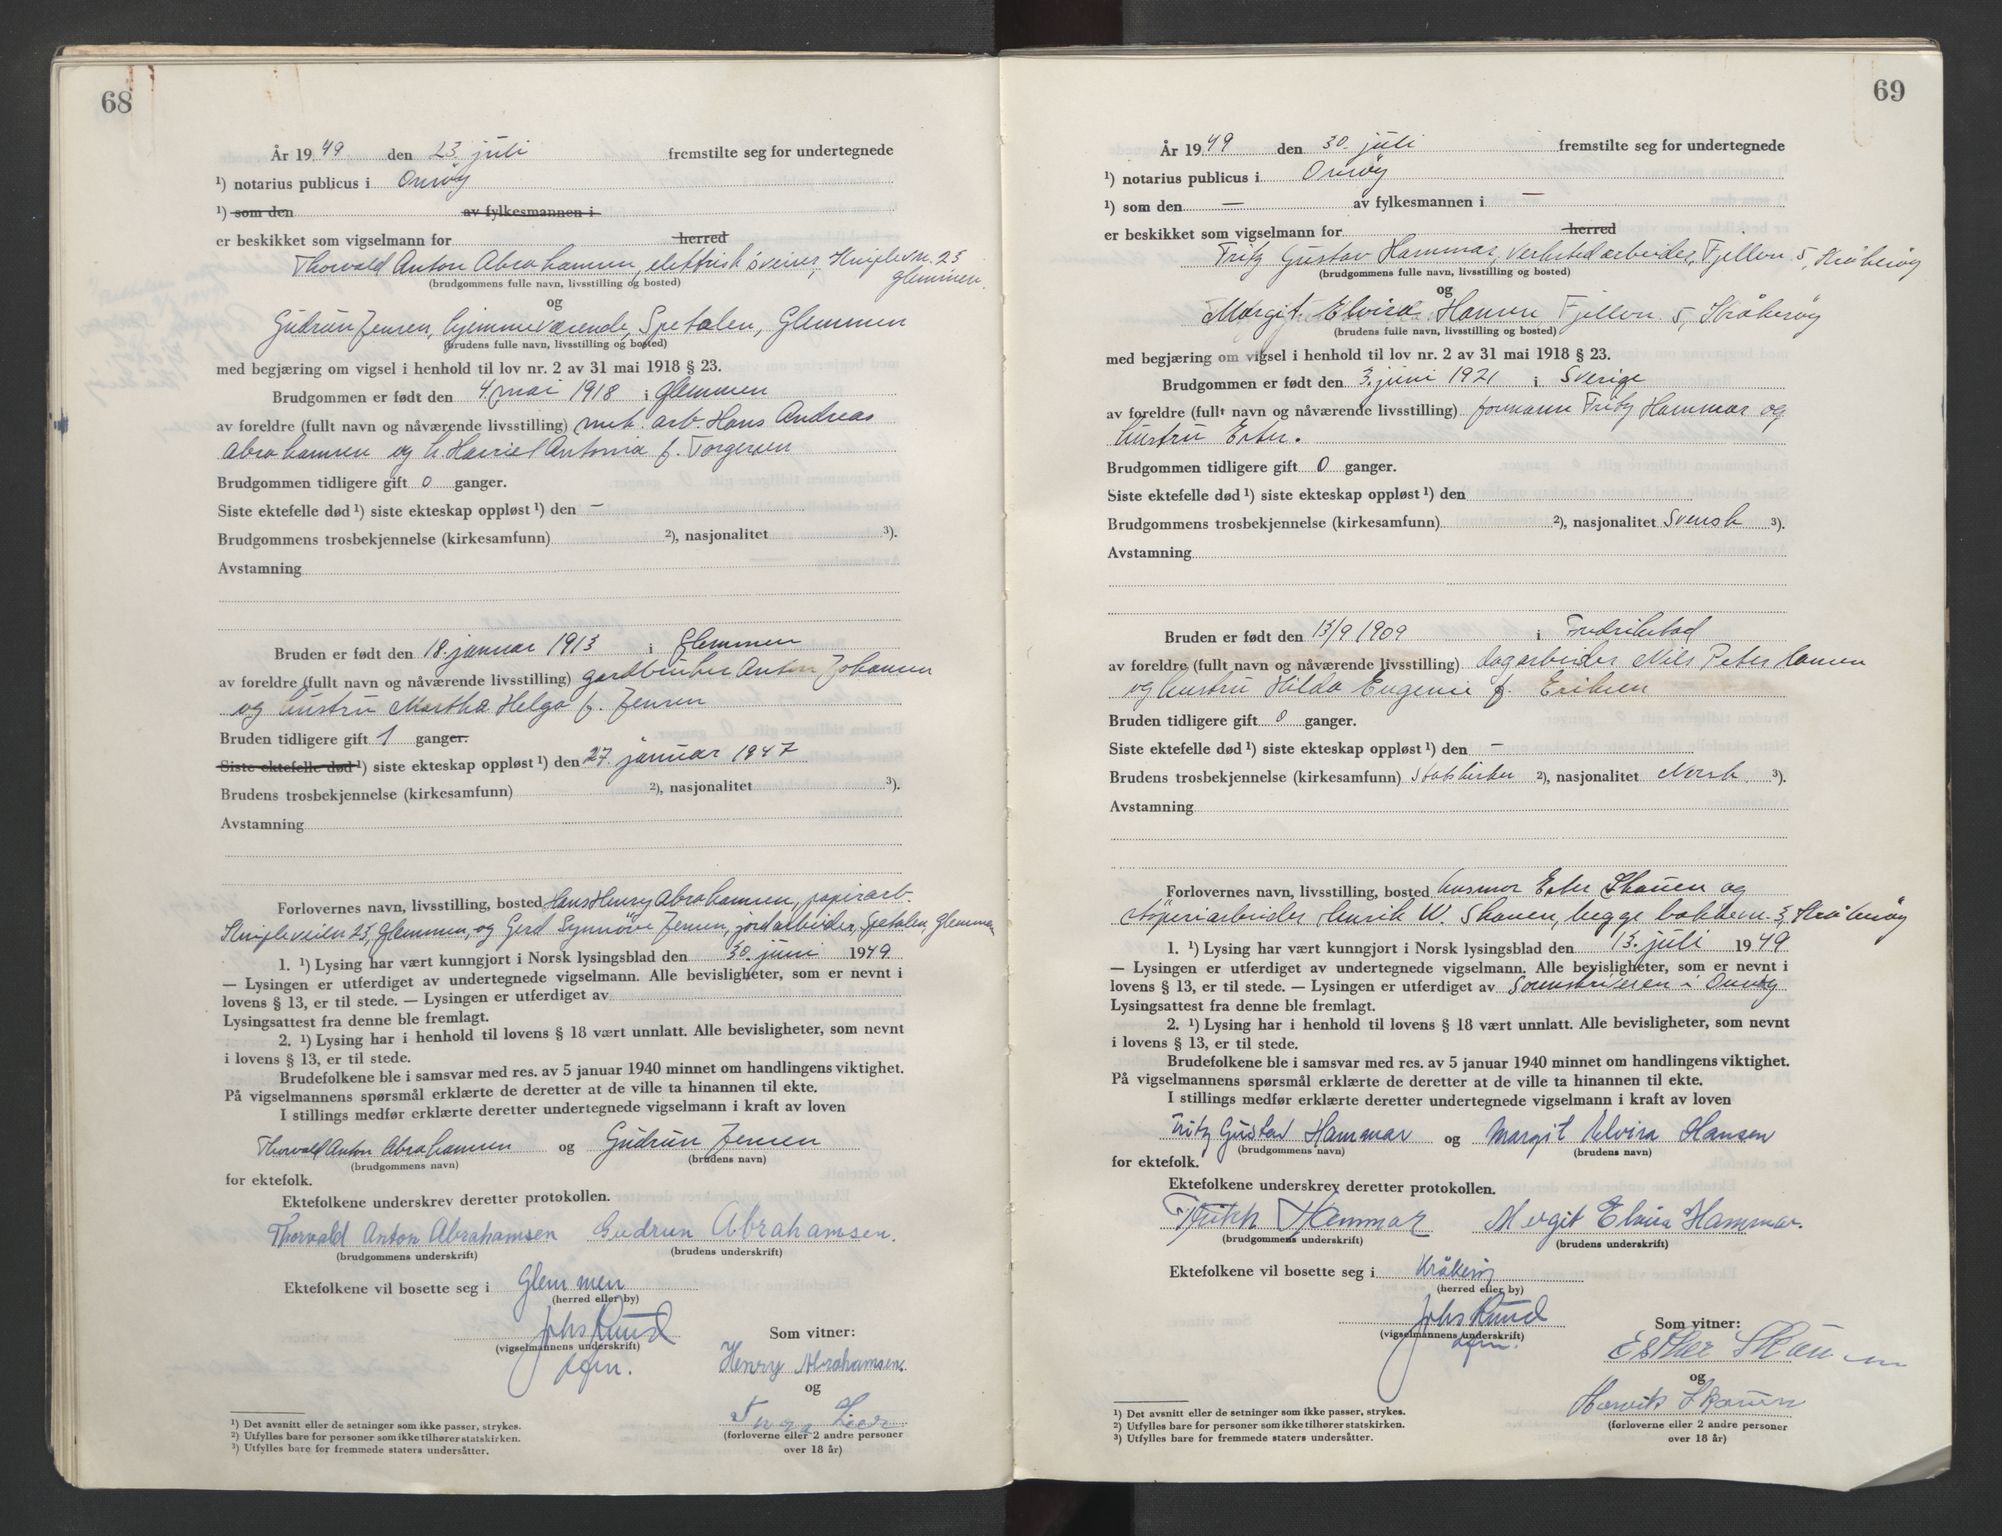 68
År 1949 den 23. juli fremstilte seg for undertegnede
¹) notarius publicus i Onsöy
¹) som den av fylkesmannen i
er beskikket som vigselmann for herred
Thorvald Anton Abrahamsen, elektrisk sveiser, 23
Glemmen.
(brudgommens fulle navn, livsstilling og bosted)
og
Gudrun Jensen, hjemmeværende, Spetalen, Glemmen
(brudens fulle navn, livsstilling og bosted)
med begjæring om vigsel i henhold til lov nr. 2 av 31 mai 1918 § 23.
Brudgommen er født den 4. mai 1918 i Glemmen
av foreldre (fullt navn og nåværende livsstilling) mek. arb. Hans Andreas
Abrahamsen og h. Harriet Antonia f. Torgersen
Brudgommen tidligere gift 0 ganger.
Siste ektefelle død ¹) siste ekteskap oppløst ¹) den –
Brudgommens trosbekjennelse (kirkesamfunn) ²), nasjonalitet ³).
Avstamning
Bruden er født den 18. januar 1913 i Glemmen
av foreldre (fullt navn og nåværende livsstilling) gardbruker Anton Johansen
og hustru Martha Helga f. Jensen
Bruden tidligere gift 1 ganger.
Siste ektefelle død ¹) siste ekteskap oppløst ¹) den 27. januar 1947
Brudens trosbekjennelse (kirkesamfunn) ²), nasjonalitet ³).
Avstamning
Forlovernes navn, livsstilling, bosted Hans Henry Abrahamsen, papirarb.
23, Glemmen, og Gerd Synnöve Jensen, jordarbeider, Spetalen, Glemmen
1. ¹) Lysing har vært kunngjort i Norsk lysingsblad den 30. juni 1949
— Lysingen er utferdiget av undertegnede vigselmann. Alle bevisligheter, som er nevnt i
lovens § 13, er til stede. — Lysingen er utferdiget av
Lysingsattest fra denne ble fremlagt.
2. ¹) Lysing har i henhold til lovens § 18 vært unnlatt. Alle bevisligheter, som nevnt
i lovens § 13, er til stede.
Brudefolkene ble i samsvar med res. av 5 januar 1940 minnet om handlingens viktighet.
På vigselmannens spørsmål erklærte de deretter at de ville ta hinannen til ekte.
I stillings medfør erklærte deretter undertegnede vigselmann i kraft av loven
Thorvald Anton Abrahamsen og Gudrun Jensen
(brudgommens navn) (brudens navn)
for ektefolk.
Ektefolkene underskrev deretter protokollen.
Thorvald Anton Abrahamsen Gudrun Abrahamsen.
(brudgommens underskrift) (brudens underskrift)
Ektefolkene vil bosette seg i Glemmen
(herred eller by)
Johs Ruud
(vigselmannens underskrift)
Som vitner:
Henry Abrahamsen.
og
(forloverne eller 2 andre personer
over 18 år)
¹) Det avsnitt eller de setninger som ikke passer, strykes.
²) Utfylles bare for personer som ikke tilhører statskirken.
³) Utfylles bare for fremmede staters undersåtter.
69
År 1949 den 30. juli fremstilte seg for undertegnede
¹) notarius publicus i Onsöy
¹) som den — av fylkesmannen i —
er beskikket som vigselmann for herred
Fritz Gustav Hammar, verkstedarbeider, Fjellvn. 5, Kråkeröy
(brudgommens fulle navn, livsstilling og bosted)
og
Margit Elvira Hansen, Fjellvn 5, Kråkeröy
(brudens fulle navn, livsstilling og bosted)
med begjæring om vigsel i henhold til lov nr. 2 av 31 mai 1918 § 23.
Brudgommen er født den 3. juni 1921 i Sverige
av foreldre (fullt navn og nåværende livsstilling) formann Fritz Hammar og
hustru Ester.
Brudgommen tidligere gift 0 ganger.
Siste ektefelle død ¹) siste ekteskap oppløst ¹) den
Brudgommens trosbekjennelse (kirkesamfunn) ²), nasjonalitet Svensk ³).
Avstamning
Bruden er født den 13/9 1909 i Fredrikstad
av foreldre (fullt navn og nåværende livsstilling) dagarbeider Nils Peter Hansen
og hustru Hilda Eugenie f. Eriksen
Bruden tidligere gift 0 ganger.
Siste ektefelle død ¹) siste ekteskap oppløst ¹) den –
Brudens trosbekjennelse (kirkesamfunn) Statskirken ²), nasjonalitet Norsk ³).
Avstamning
Forlovernes navn, livsstilling, bosted husmor Ester Skauen og
støperiarbeider Henrik W. Skauen, begge 3, Kråkeröy
1. ¹) Lysing har vært kunngjort i Norsk lysingsblad den 13. juli 1949
— Lysingen er utferdiget av undertegnede vigselmann. Alle bevisligheter, som er nevnt i
lovens § 13, er til stede. — Lysingen er utferdiget av Sorenskriveren i Onsöy
Lysingsattest fra denne ble fremlagt.
2. ¹) Lysing har i henhold til lovens § 18 vært unnlatt. Alle bevisligheter, som nevnt
i lovens § 13, er til stede.
Brudefolkene ble i samsvar med res. av 5 januar 1940 minnet om handlingens viktighet.
På vigselmannens spørsmål erklærte de deretter at de ville ta hinannen til ekte.
I stillings medfør erklærte deretter undertegnede vigselmann i kraft av loven
Fritz Gustav Hammar og Margit Elvira Hansen
(brudgommens navn) (brudens navn)
for ektefolk.
Ektefolkene underskrev deretter protokollen.
Hammar Margit Elvira Hammar.
(brudgommens underskrift) (brudens underskrift)
Ektefolkene vil bosette seg i Kråkeröy
(herred eller by)
Johs Ruud
(vigselmannens underskrift)
Som vitner:
Esther Skauen
og
Henrik Skauen
(forloverne eller 2 andre personer
over 18 år)
¹) Det avsnitt eller de setninger som ikke passer, strykes.
²) Utfylles bare for personer som ikke tilhører statskirken.
³) Utfylles bare for fremmede staters undersåtter.